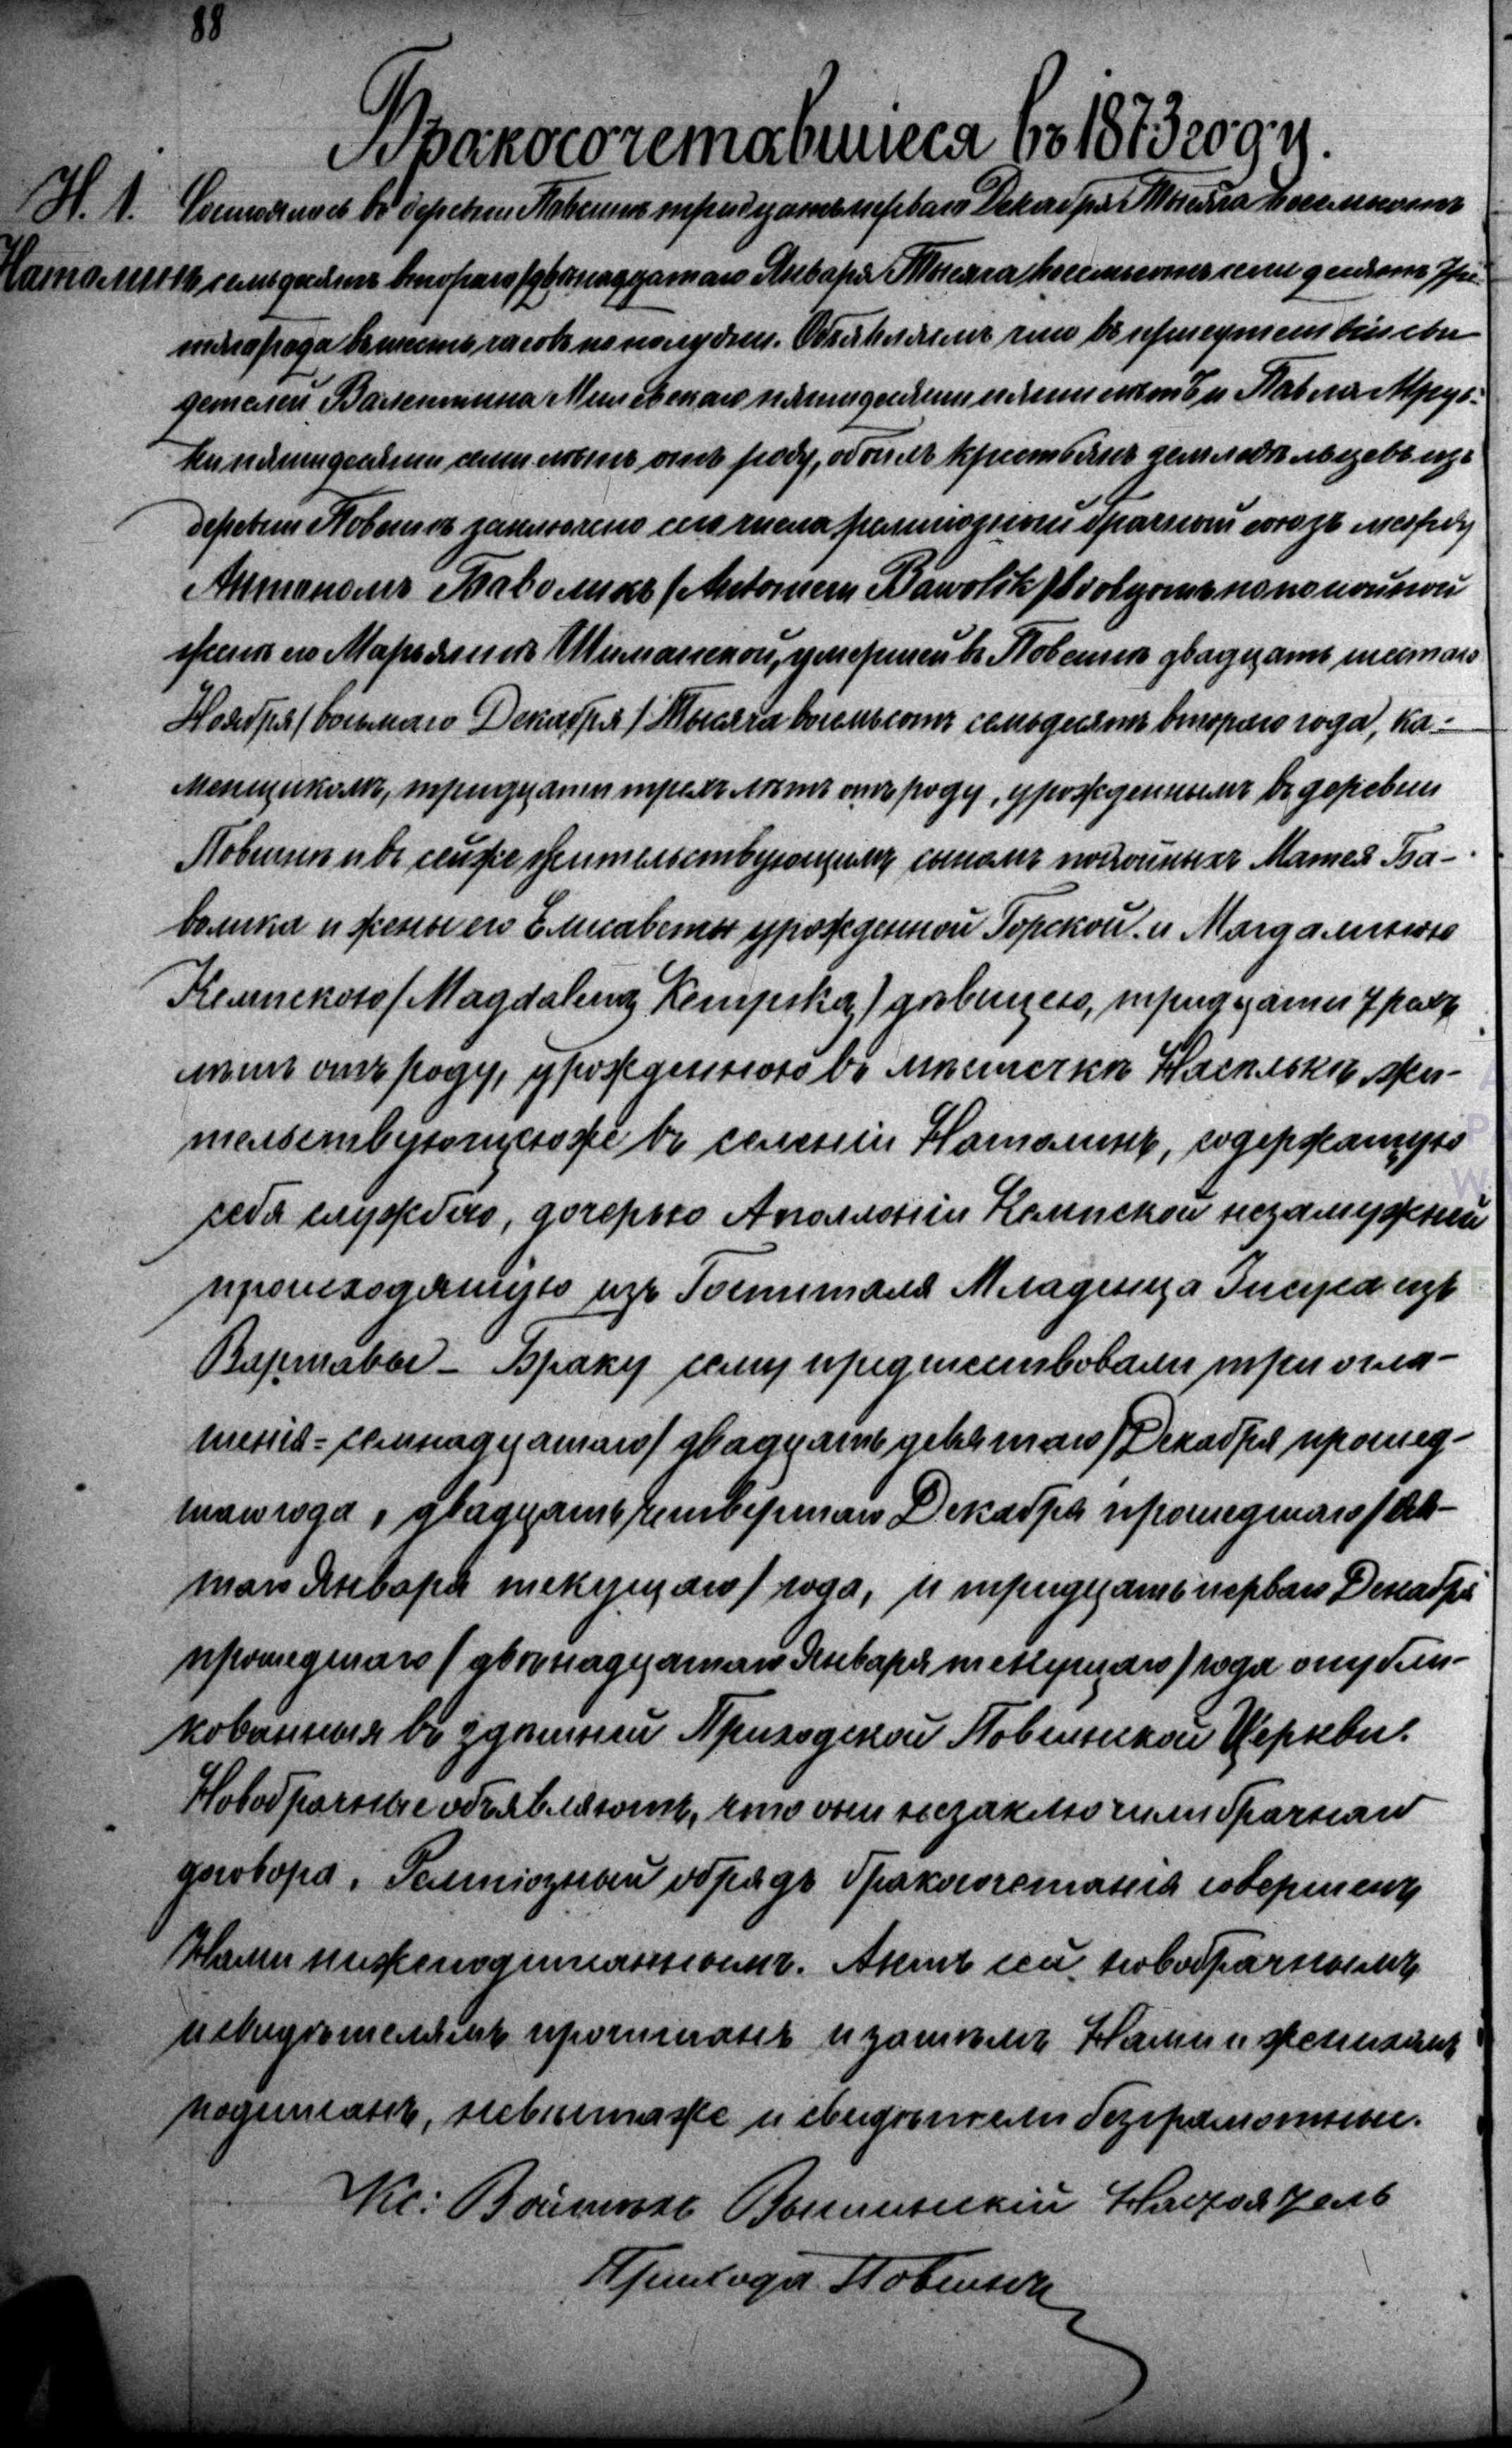 88
Бракосочетавшіеся въ 1873 году.
Н. 1. Состоялось въ деревни Повелинѣ тридцать перваго Декабря Тысяча восемьсотъ
Натолинъ семьдесятъ втораго /двѣнадцатаго Января/ Тысяча восемьсотъ семьдесятъ тре-
тяго года въ шесть часовъ пополудни. Объявляемъ что въ присутствіи сви-
детелей Валентина Милевскаго пятидесяти пяти лѣтъ и Павла Мруг-
ки пятидесяти семи лѣтъ отъ роду, обоихъ крестьянъ земледѣльцевъ изъ
деревни Повелинѣ заключено сего числа религіозный брачный союзъ между
Антономъ Баволикъ /Antoniem Bawolik/ вдовцомъ по покойной
женѣ его Марьяннѣ Шиманской, умершей въ Повелинѣ двадцать шестаго
Ноября /восьмаго Декабря/ Тысяча восемьсотъ семьдесятъ втораго года, ка-
менщикомъ, тридцати трехъ лѣтъ отъ роду, урожденнымъ въ деревни
Повелинѣ и въ сей же жительствующимъ сыномъ покойныхъ Матея Ба-
волика и жены его Елисаветы урожденной Горской и Магдалиною
Кемпскою /Magdaleną Kempską/ дѣвицею, тридцати трехъ
лѣтъ отъ роду, урожденною въ мѣстечкѣ Насѣлькѣ жи-
тельствующеюже въ селеніи Натолинъ, содержащую
себя службою, дочерью Аполлоніи Кемпской незамужней
происходящую изъ Госпиталя Младенца Іисуса изъ
Варшавы – Браку сему предшествовали три огла-
шенія = семнадцатаго /двадцать девятаго/ Декабря прошед-
шаго года, двадцать четвертаго Декабря прошедшаго /пя-
таго Января текущаго/ года, и тридцать перваго Декабря
прошедшаго /двѣнадцатаго Января текущаго/ года опубли-
кованныя въ здѣшней Приходской Повелинской Церкви.
Новобрачные объявляютъ, что они незаключили брачнаго
договора. Религіозный обрядъ бракосочетанія совершенъ
Нами нижеподписаннымъ. Актъ сей новобрачнымъ
и свидѣтелямъ прочитанъ и затѣмъ Нами и женихомъ
подписанъ, невѣстаже и свидѣтели безграмотные.
Кс: Войтѣхъ Настоятель
Прихода Повелинъ